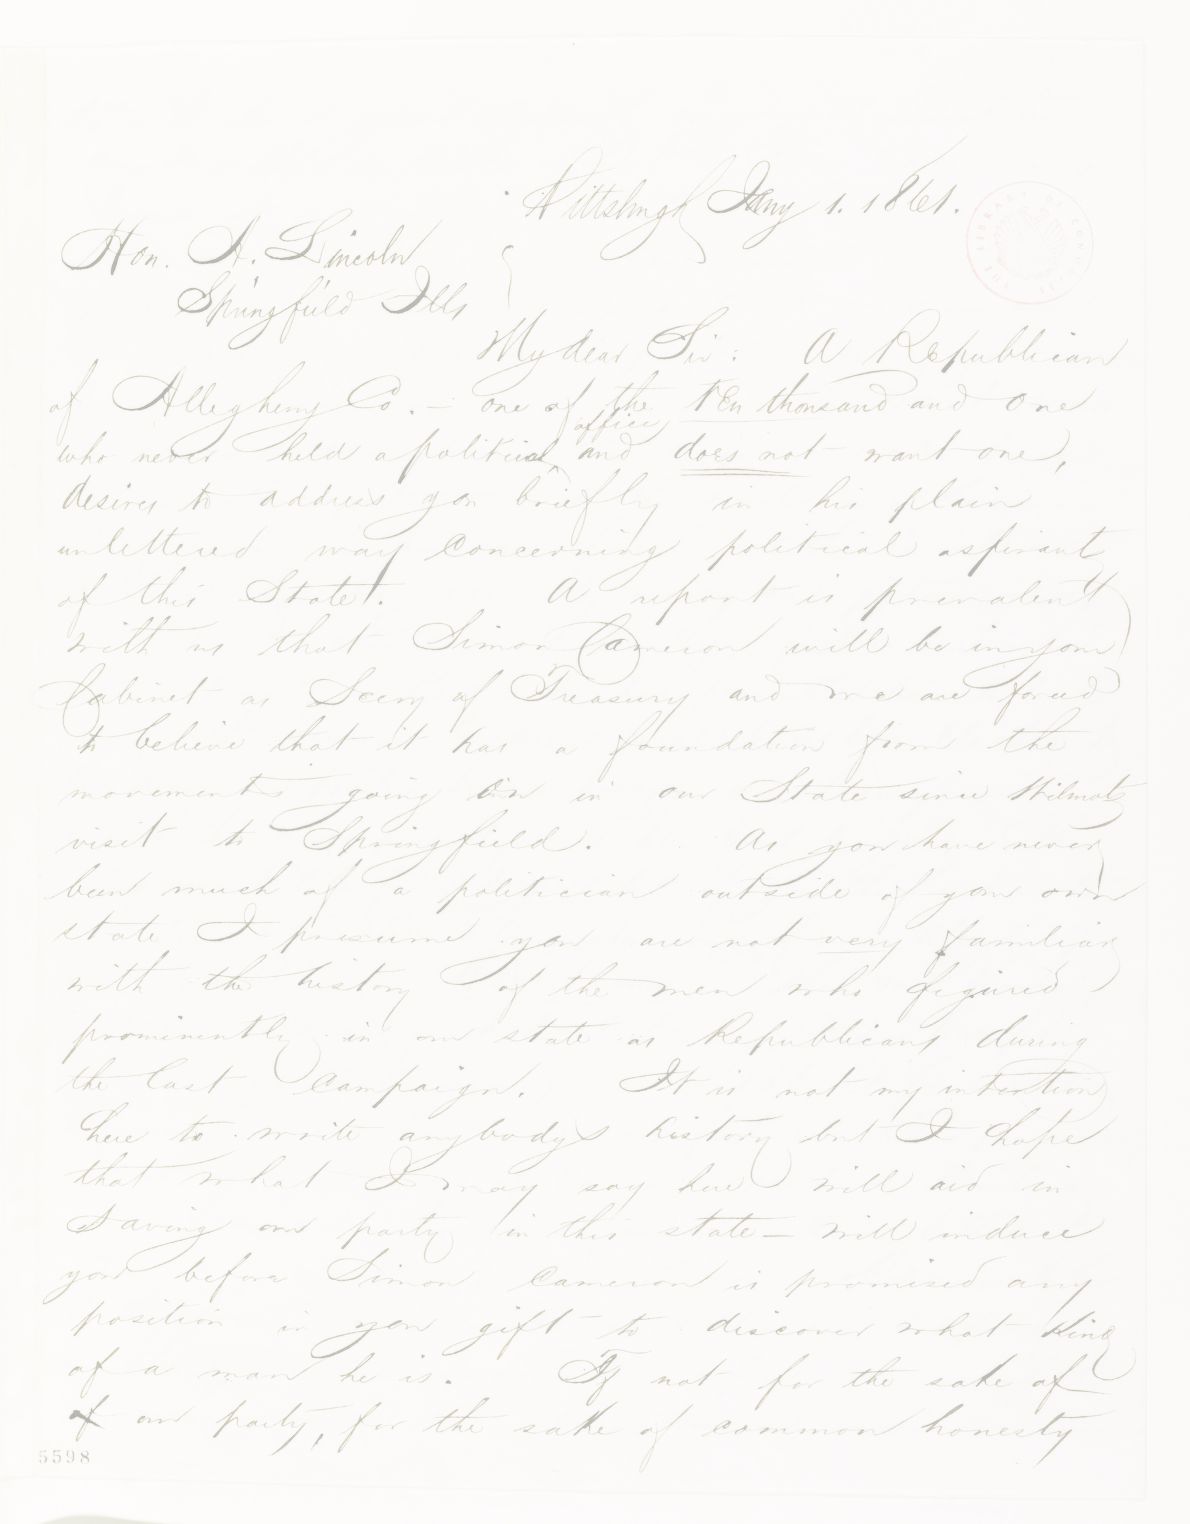 Pittsburgh Jany 1. 1861.
Hon. A. Lincoln
Springfield Ills
My dear Sir: A Republican
of Allegheny Co. — one of the ten thousand and one
office
who never held a political and does not want one,
desires to address you briefly in his plain
unlettered way concerning political aspirants
of this State. A report is prevalent
with us that Simon Cameron will be in your
Cabinet as Secry of Treasury and we are forced
to believe that it has a foundation from the
movements going on in our State since Wilmots
visit to Springfield. As you have never
been much of a politician outside of your own
state I presume you are not very familiar
with the history of the men who figured
prominently in our state as Republicans during
the last campaign. It is not my intention
here to write anybodys history but I hope
that what I may say here will aid in
saving our party in this state — will induce
you before Simon Cameron is promised any
position in your gift to discover what kind
of a man he is. If not for the sake of
of our party, for the sake of common honesty
5598
THE LIBRARY OF CONGRESS